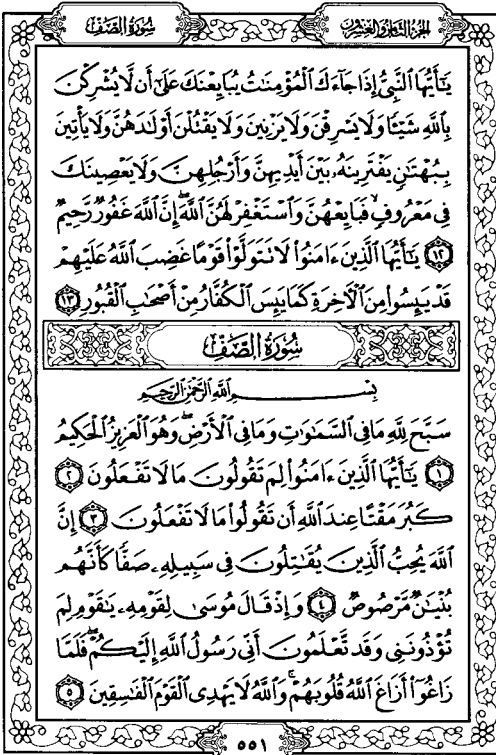 سُورَةُ الصَّفِّ الجزء الثامن والعشرون
يَٰٓأَيُّهَا ٱلنَّبِيُّ إِذَا جَآءَكَ ٱلْمُؤْمِنَٰتُ يُبَايِعْنَكَ عَلَىٰٓ أَن لَّا يُشْرِكْنَ
بِٱللَّهِ شَيْـًٔا وَلَا يَسْرِقْنَ وَلَا يَزْنِينَ وَلَا يَقْتُلْنَ أَوْلَٰدَهُنَّ وَلَا يَأْتِينَ
بِبُهْتَٰنٍ يَفْتَرِينَهُۥ بَيْنَ أَيْدِيهِنَّ وَأَرْجُلِهِنَّ وَلَا يَعْصِينَكَ
فِى مَعْرُوفٍ ۙ فَبَايِعْهُنَّ وَٱسْتَغْفِرْ لَهُنَّ ٱللَّهَ ۖ إِنَّ ٱللَّهَ غَفُورٌ رَّحِيمٌ
١٢ يَٰٓأَيُّهَا ٱلَّذِينَ ءَامَنُوا۟ لَا تَتَوَلَّوْا۟ قَوْمًا غَضِبَ ٱللَّهُ عَلَيْهِمْ
قَدْ يَئِسُوا۟ مِنَ ٱلْءَاخِرَةِ كَمَا يَئِسَ ٱلْكُفَّارُ مِنْ أَصْحَٰبِ ٱلْقُبُورِ ١٣
سُورَةُ الصَّفِّ
بِسْمِ ٱللَّهِ ٱلرَّحْمَٰنِ ٱلرَّحِيمِ
سَبَّحَ لِلَّهِ مَا فِى ٱلسَّمَٰوَٰتِ وَمَا فِى ٱلْأَرْضِ ۖ وَهُوَ ٱلْعَزِيزُ ٱلْحَكِيمُ
١ يَٰٓأَيُّهَا ٱلَّذِينَ ءَامَنُوا۟ لِمَ تَقُولُونَ مَا لَا تَفْعَلُونَ ٢
كَبُرَ مَقْتًا عِندَ ٱللَّهِ أَن تَقُولُوا۟ مَا لَا تَفْعَلُونَ ٣ إِنَّ
ٱللَّهَ يُحِبُّ ٱلَّذِينَ يُقَٰتِلُونَ فِى سَبِيلِهِۦ صَفًّا كَأَنَّهُم
بُنْيَٰنٌ مَّرْصُوصٌ ٤ وَإِذْ قَالَ مُوسَىٰ لِقَوْمِهِۦ يَٰقَوْمِ لِمَ
تُؤْذُونَنِى وَقَد تَّعْلَمُونَ أَنِّى رَسُولُ ٱللَّهِ إِلَيْكُمْ ۖ فَلَمَّا
زَاغُوٓا۟ أَزَاغَ ٱللَّهُ قُلُوبَهُمْ ۚ وَٱللَّهُ لَا يَهْدِى ٱلْقَوْمَ ٱلْفَٰسِقِينَ ٥
٥٥١